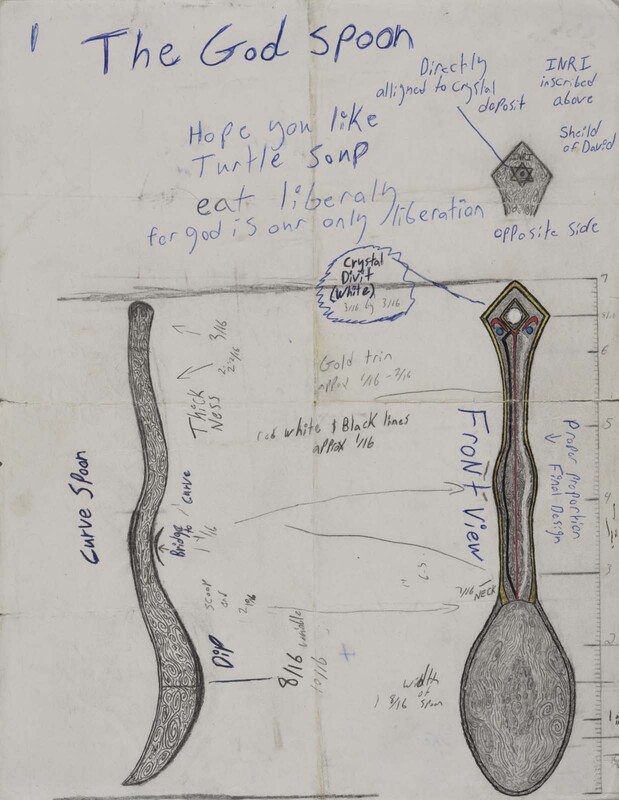 The God spoon
Directly
alligned to Crystal
deposit
INRI
inscribed
above
Sheild
of David
INRI
opposite side
Hope you like
Turtle Soup
eat liberaly
for god is our only liberation
Crystal
Divit
(White)
3/16 by 3/16
Gold trin
approx 1/16 - 2/16
red white & Black lines
approx 1/16
Curve Spoon
Thick
Ness
3/16
Bridge
to / Curve
scoop
out
Dip
8/16 variable
10/16
Front View
Proper Proportion
Final Design
7
6
5
4
3
2
1
NECK
width
of spoon
1 8/16